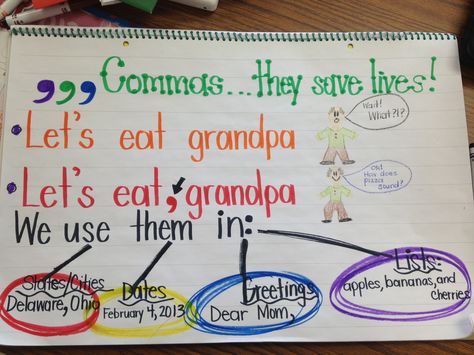 ,,, Commas...they save lives!
Let's eat grandpa
Wait!
What?!?
Let's eat, grandpa
Oh!
How does
pizza
sound?
We use them in:
States/Cities
Delaware, Ohio
Dates
February 4, 2013
Greetings
Dear Mom,
Lists:
apples, bananas, and
cherries